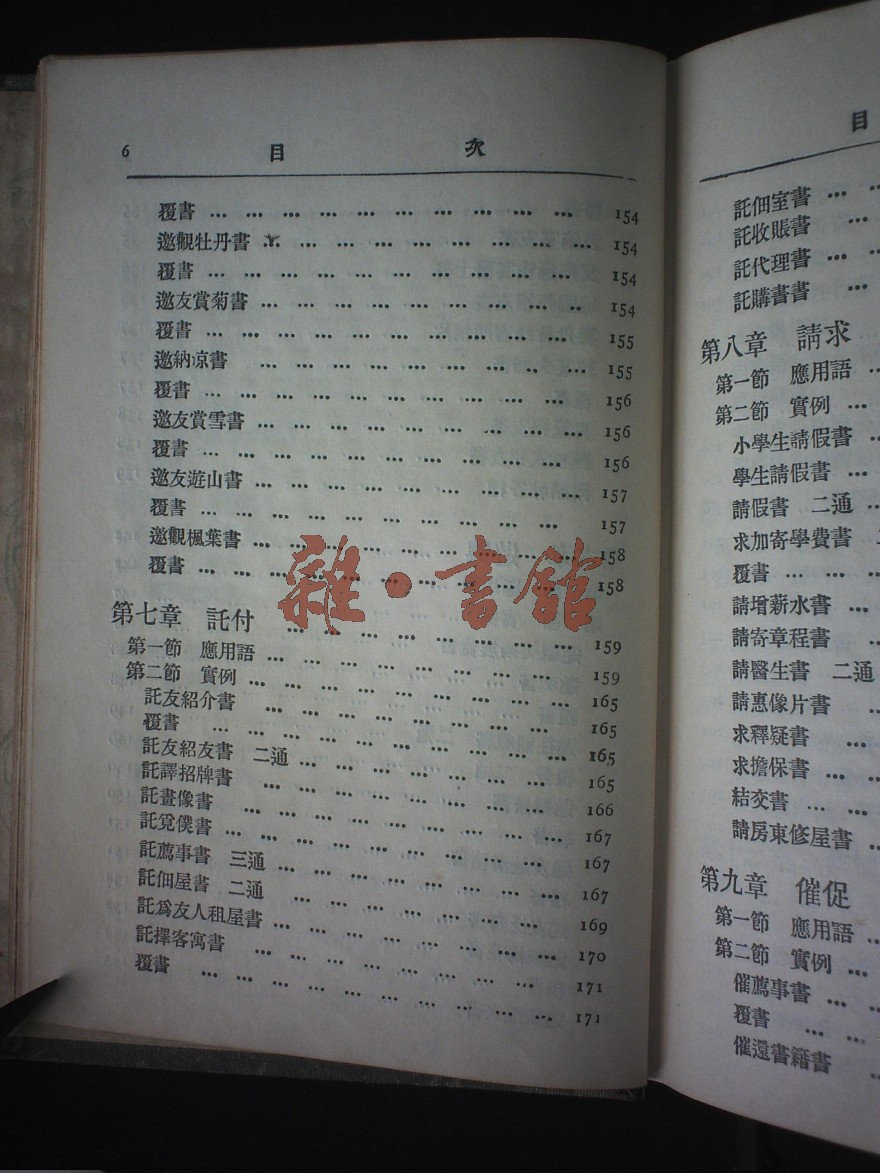 6 目 次
覆書 … … … … … … … … … … 154
邀觀牡丹書 … … … … … … … … 154
覆書 … … … … … … … … … … 154
邀友賞菊書 … … … … … … … … 154
覆書 … … … … … … … … … … 155
邀納凉書 … … … … … … … … 155
覆書 … … … … … … … … … … 156
邀友賞雪書 … … … … … … … … 156
覆書 … … … … … … … … … … 156
邀友遊山書 … … … … … … … … 157
覆書 … … … … … … … … … … 157
邀觀楓葉書 … … … … … … … … 158
覆書 … … … … … … … … … … 158
第七章 託付 … … … … … … … … 159
第一節 應用語 … … … … … … … … 159
第二節 實例 … … … … … … … … 165
託友紹介書 … … … … … … … … 165
覆書 … … … … … … … … … … 165
託友紹友書 二通 … … … … … … … 165
託譯招牌書 … … … … … … … … 166
託畫像書 … … … … … … … … 167
託覓僕書 … … … … … … … … 167
託薦事書 三通 … … … … … … … 167
託佃屋書 二通 … … … … … … … 169
託爲友人租屋書 … … … … … … … 170
託擇客寓書 … … … … … … … … 171
覆書 … … … … … … … … … … 171
雜·書館
目
託佃室書 … …
託收賬書 …
託代理書 … …
託購書書 …
第八章 請求
第一節 應用語 …
第二節 實例 …
小學生請假書 …
學生請假書 …
請假書 二通 …
求加寄學費書
覆書 … …
請增薪水書 …
請寄章程書 …
請醫生書 二通
請惠像片書 …
求釋疑書 …
求擔保書 …
結交書 …
請房東修屋書
第九章 催促
第一節 應用語 …
第二節 實例 …
催薦事書 …
覆書 … …
催還書籍書 …